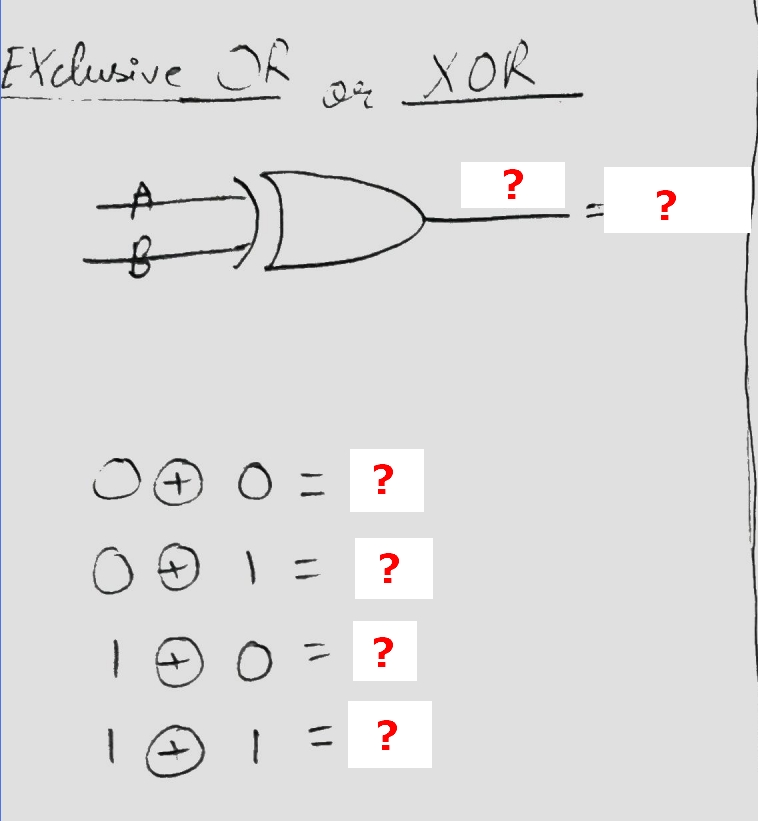 EXclusive OR or XOR
A ? = ?
B
0 ⊕ 0 = ?
0 ⊕ 1 = ?
1 ⊕ 0 = ?
1 ⊕ 1 = ?